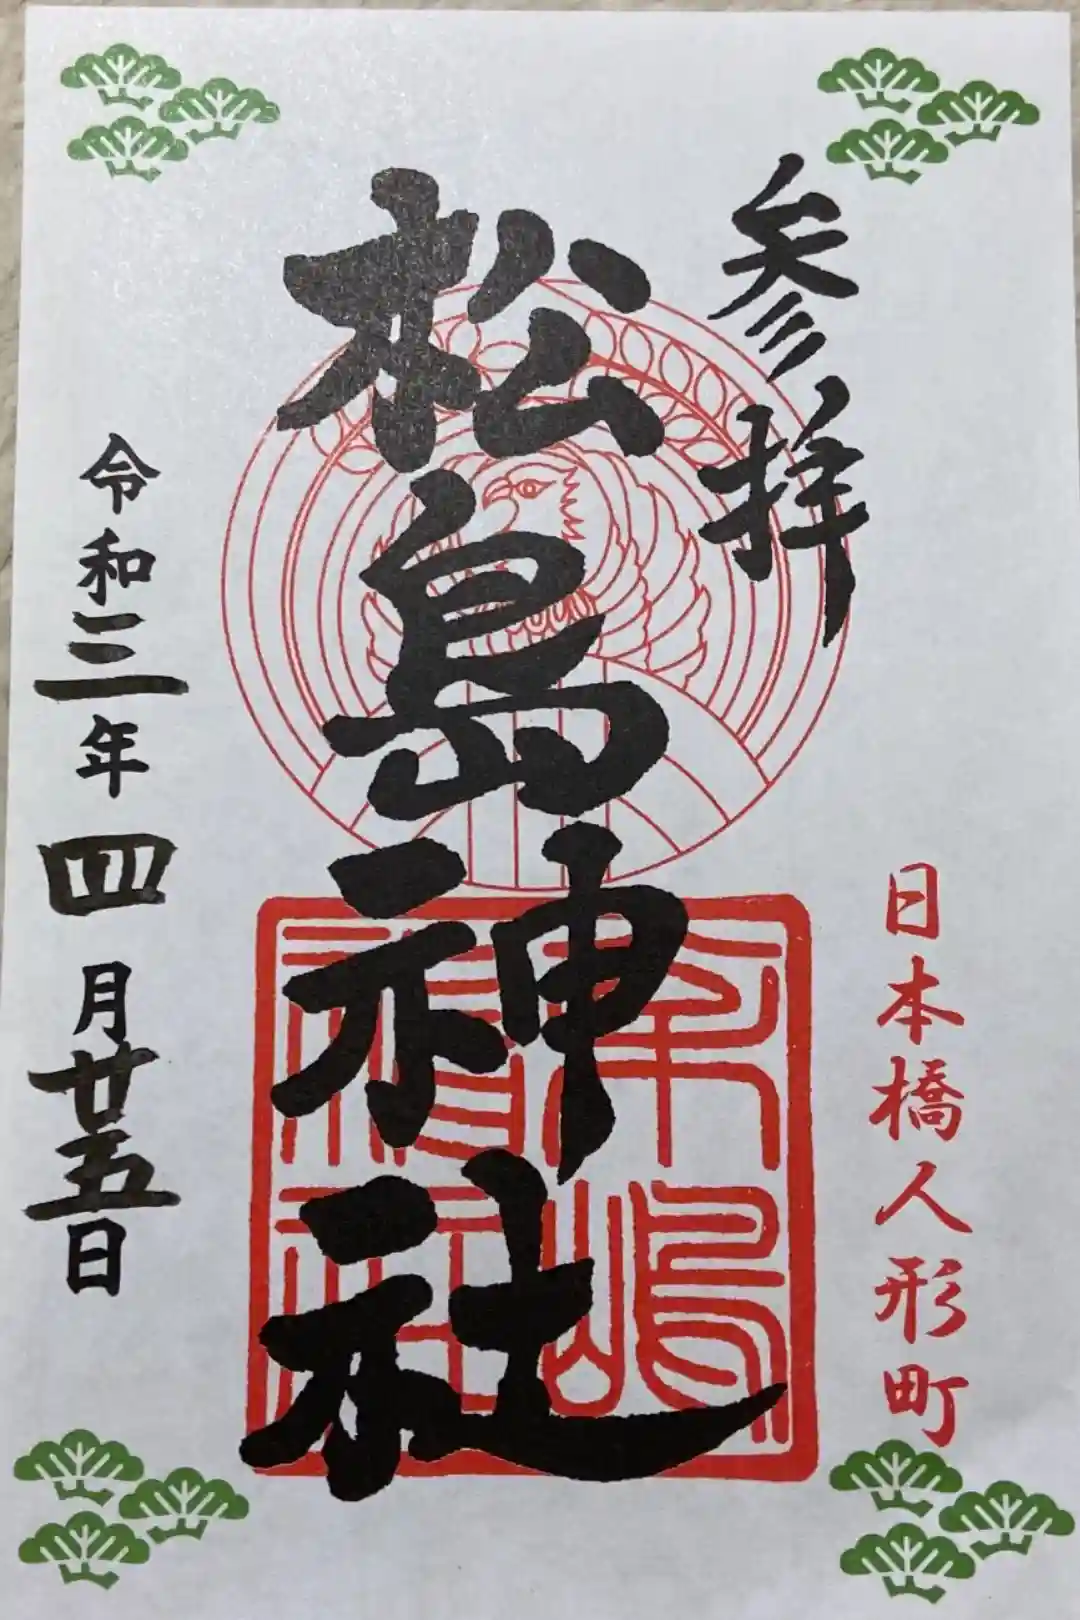 参拝
日本橋人形町
松島神社
令和三年四月廿五日